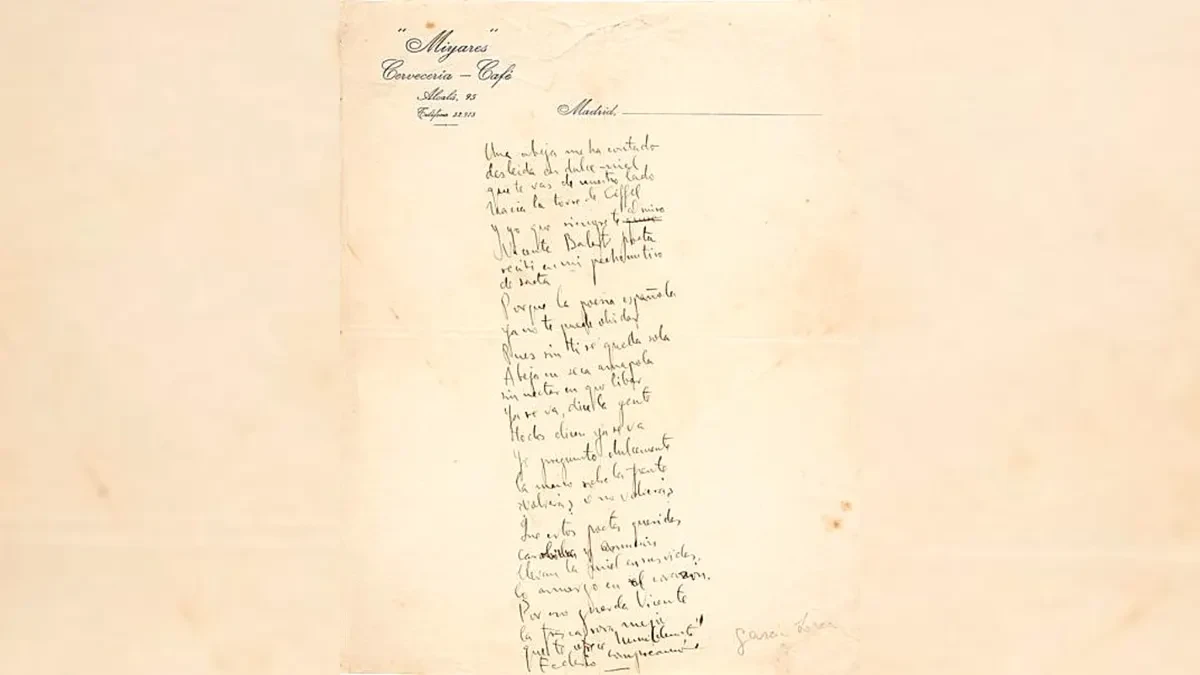 "Miyares"
Cervecería — Café
Alcalá, 95
Teléfono 52.513
Madrid,
Una abeja me ha contado
desleida en dulce miel
que te vas de nuestro lado
hacia la torre de Eiffel
y yo que siempre te miro
Vicente poeta
sentí en mi pecho un tiro
de saeta
Porque la poesia española
ya no te puede olvidar
Pues sin ti se queda sola
Abeja en seca amapola
sin nectar en que libar
Ya se va, dice la gente
Todos dicen ya se va
Yo pregunto dulcemente
la mano sobre la frente
¿Volverá? o no volverá?
Que estos poetas queridos
y
llevan la miel en sus vidas
lo amargo en el corazón.
Por eso guarda Vicente
la fresca rosa
que te ofrece "humildemente"
Federico
García Lorca